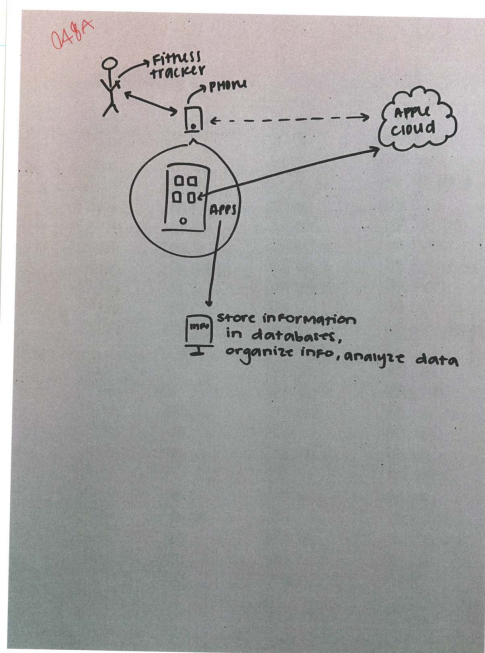 048A
Fitness
tracker
PHONE
APPLE
cloud
APPS
INFO
store information
in databases,
organize info, analyze data